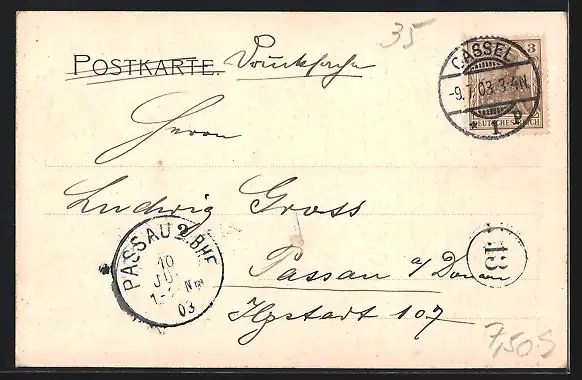 35
POSTKARTE. Drucksache
3
DEUTSCHES REICH
CASSEL
-9.7.03.3-4N.
* 1 b
Herrn
Ludwig Gross
PASSAU 2 BHF
10
JUL
1-2 Nm
03
13
Passau a/Donau
Ilzstadt 107
7,50 S